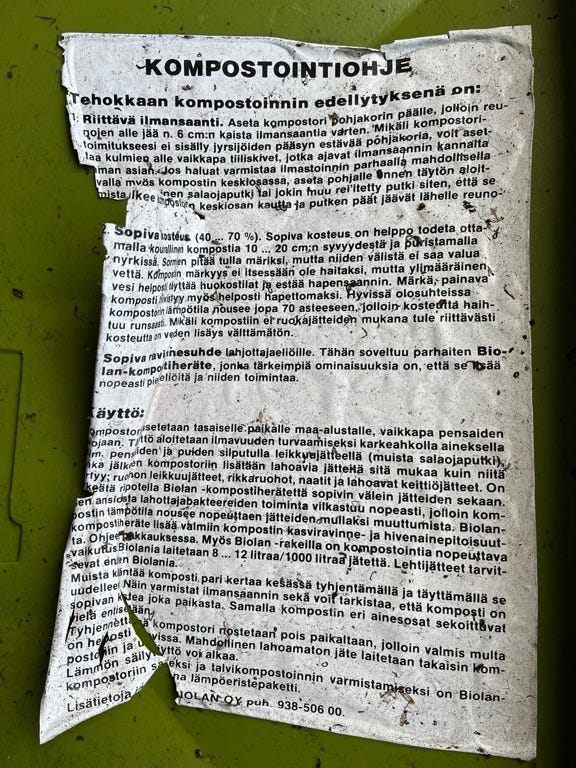 KOMPOSTOINTIOHJE
Tehokkaan kompostoinnin edellytyksenä on:
1. Riittävä ilmansaanti. Aseta kompostori pohjakorin päälle, jolloin reu-
nojen alle jää n. 6 cm:n kaista ilmansaantia varten. Mikäli kompostori-
toimitukseesi ei sisälly jyrsijöiden pääsyn estävää pohjakoria, voit aset-
taa kulmien alle vaikkapa tiiliskivet, jotka ajavat ilmansaannin kannalta
saman asian. Jos haluat varmistaa ilmastoinnin parhaalla mahdollisella
tavalla myös kompostin keskiosassa, aseta pohjalle ennen täytön aloit-
tamista ilkee salaojaputki tai jokin muu rei'itetty putki siten, että se
kompostorin keskiosan kautta ja putken päät jäävät lähelle reuno-
Sopiva kosteus (40 ... 70 %). Sopiva kosteus on helppo todeta otta-
malla kourallinen kompostia 10 ... 20 cm:n syvyydestä ja puristamalla
nyrkissä. Sormien pitää tulla märiksi, mutta niiden välistä ei saa valua
vettä. Kompostin märkyys ei itsessään ole haitaksi, mutta ylimääräinen
vesi helposti täyttää huokostilat ja estää hapensaannin. Märkä, painava
komposti tiivistyy myös helposti hapettomaksi. Hyvissä olosuhteissa
kompostorin lämpötila nousee jopa 70 asteeseen, jolloin kosteutta haih-
tuu runsaasti. Mikäli kompostiin ei ruokajätteiden mukana tule riittävästi
kosteutta on veden lisäys välttämätön.
Sopiva ravinnesuhde lahjottajaeliöille. Tähän soveltuu parhaiten Bio-
lan-kompostiheräte, jonka tärkeimpiä ominaisuuksia on, että se lisää
nopeasti pieneliöitä ja niiden toimintaa.
Käyttö:
Kompostori asetetaan tasaiselle paikalle maa-alustalle, vaikkapa pensaiden
suojaan. Täyttö aloitetaan ilmavuuden turvaamiseksi karkeahkolla aineksella
m. pensaiden ja puiden silputulla leikkuujätteellä (muista salaojaputki),
jälkeen kompostoriin lisätään lahoavia jätteitä sitä mukaa kuin niitä
rtyy; ruohon leikkuujätteet, rikkaruohot, naatit ja lahoavat keittiöjätteet. On
keätä ripotella Biolan -kompostiherätettä sopivin välein jätteiden sekaan.
en ansiosta lahottajabakteereiden toiminta vilkastuu nopeasti, jolloin kom-
postin lämpötila nousee nopeuttaen jätteiden mullaksi muuttumista. Biolan-
kompostiheräte lisää valmiin kompostin kasviravinne- ja hivenainepitoisuut-
ta. Ohjeet pakkauksessa. Myös Biolan -rakeilla on kompostointia nopeuttava
vaikutus. Biolania laitetaan 8 ... 12 litraa/1000 litraa jätettä. Lehtijätteet tarvit-
sevat enemmän Biolania.
Muista kääntää komposti pari kertaa kesässä tyhjentämällä ja täyttämällä se
uudelleen. Näin varmistat ilmansaannin sekä voit tarkistaa, että komposti on
sopivan kostea joka paikasta. Samalla kompostin eri ainesosat sekoittuvat
vielä entisestään.
Tyhjennettäessä kompostori nostetaan pois paikaltaan, jolloin valmis multa
on helposti otettavissa. Mahdollinen lahoamaton jäte laitetaan takaisin kom-
postoriin ja uusi täyttö voi alkaa.
Lämmön säilymiseksi ja talvikompostoinnin varmistamiseksi on Biolan-
kompostoriin saatavana lämpöeristepaketti.
Lisätietoja BIOLAN OY puh. 938-506 00.